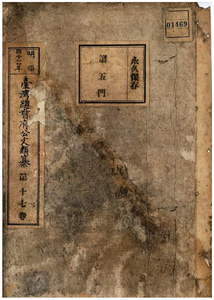 01469
永久保存
第五門
明治
四十二年
臺灣總督府公文類纂
第十七卷